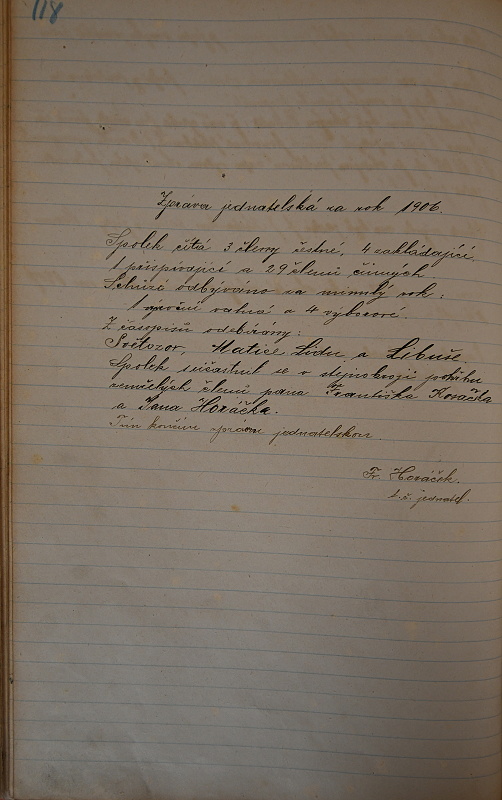 118
Zpráva jednatelská za rok 1906.
Spolek čítá 3 členy čestné, 4 zakládající,
1 přispívající a 29 členů činných
Schůzí odbýváno za minulý rok:
1 výroční valná a 4 výborové.
Z časopisů odebírány:
Světozor, Matice Lidu, a Libuše.
Spolek súčastnil se v stejnokroji pohřbu
zemřelých členů pana Františka Kováčka
a Jana Horáčka.
Tím končím zprávu jednatelskou.
Fr. Horáček.
t. č. jednatel.